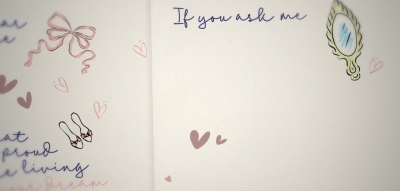 ar
e
at
proud
e living
your dream
If you ask me